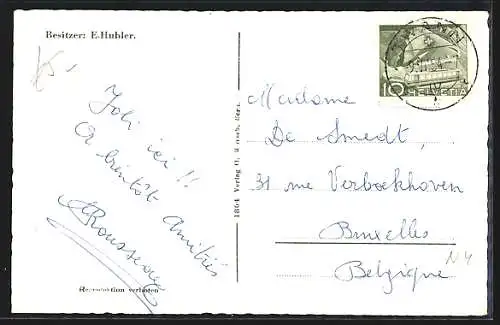 Besitzer: E.Hubler.
Joli ici !!
A bientôt Amitiés
ARousseau
Reproduktion verboten
1864 Verlag H.
10 HELVETIA
Madame
De Smedt,
31 rue Verboekhoven
Bruxelles
Belgique